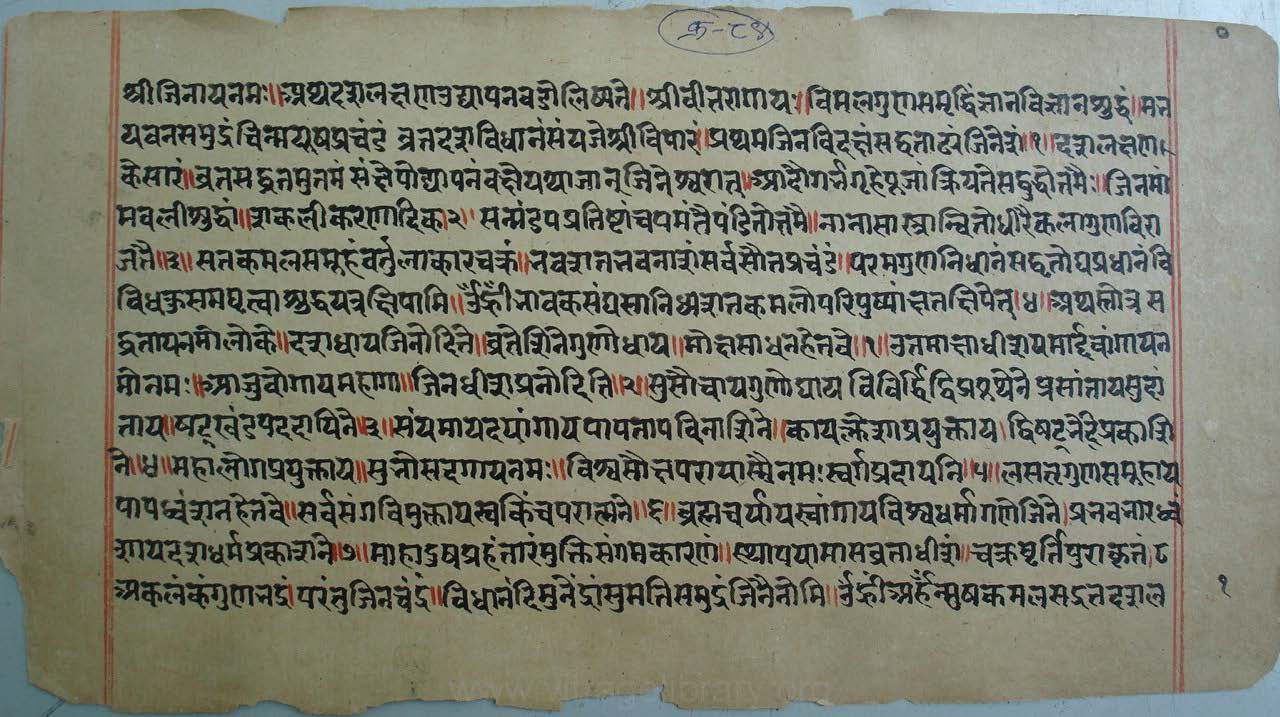 क्र-८४
श्रीजिनायनमः॥अथदशलक्षणउद्यापनवडौलिख्यते॥श्रीवीतरागाय॥विमलगुणसमृद्धिंज्ञानविज्ञानशुद्धं॥मन
यवनसमुद्रंचिन्मयूषप्रचंडं व्रतदशविधानंसंयजेश्रीविपारं॥प्रथमजिनविदक्षंसद्वताढ्यंजिनेशं॥१॥दशलक्षण
केसारं॥व्रतसद्वतमुतमं संक्षेपोद्यापनंवक्ष्येयथाजातजिनेश्वरात्॥आदौगर्भगृहेपूजां क्रियतेसद्बुद्धोतमैः॥जिनमा
मवलीशुद्धां॥शकलीकरणादिका२॥ सन्मंडपप्रतिष्टांचपमंतैपंडितोत्तमै॥नानासास्त्रान्वितोधीरैकलागुणविरा
जतै॥३॥सतकमलसमूहंवर्तुलाकारचक्रं॥नवशतनवनाशंसर्वसौतप्रचंडं॥परमगुणनिधानंसद्वतोघप्रधानंवि
विधकुसमघृत्वाशुद्धयत्रक्षिपामि॥ॐह्रींश्रावकसंघसानिध्यशतकमलोपरिपुष्पांक्षतक्षिपेत्॥४॥अथस्तोत्र स
द्वतायनमोलोके॥दशधायजिनोदिते॥व्रतेशिनेगुणोधाय॥मोक्षसाधनहेतवे॥१॥उतमाक्षाधीशायमार्द्दवांगायन
मोनमः॥आर्जुवोगायमहाणा॥जिनधीशप्रनोदिति॥२॥सुसौचायगुणोद्याय विविर्द्धिद्विप्रष्टथेने प्रसांतायसुशं
ताय॥षट्खंडपददायिने॥३॥संयमायदयांगायपापतापविनाशिने॥कायक्लेशप्रयुक्ताय॥द्विषट्नैदप्रकाशि
ने॥४॥महात्यागप्रयुक्ताय॥सुनीसदगायनमः॥विश्वसौक्षपरायास्मैनमःस्वर्गप्रदायनि॥५॥लसतगुणसमूहाय
पापध्वंशनहेतवे॥सर्वसंगविमुक्तायस्वकिंचपरात्मने॥६॥ब्रह्मचर्यायस्वांगायविश्वधर्मागणेजिने॥प्रनवनारध्वं
शायदशधर्मप्रकाशने॥७॥माहाडुषप्रहंतारंमुक्तिसंगमकारणं॥स्थापयामासव्रताधीशं॥चक्रमूर्तिपुराकृतं॥८
अकलंकंगुणनद्रं॥परंतुजिनचंद्रं॥विधानंदिमुनेंद्रंसुमतिसमुद्रंजिनैनौमि॥ॐह्रींअर्हन्मुषकमलसद्व्रतदशल
१